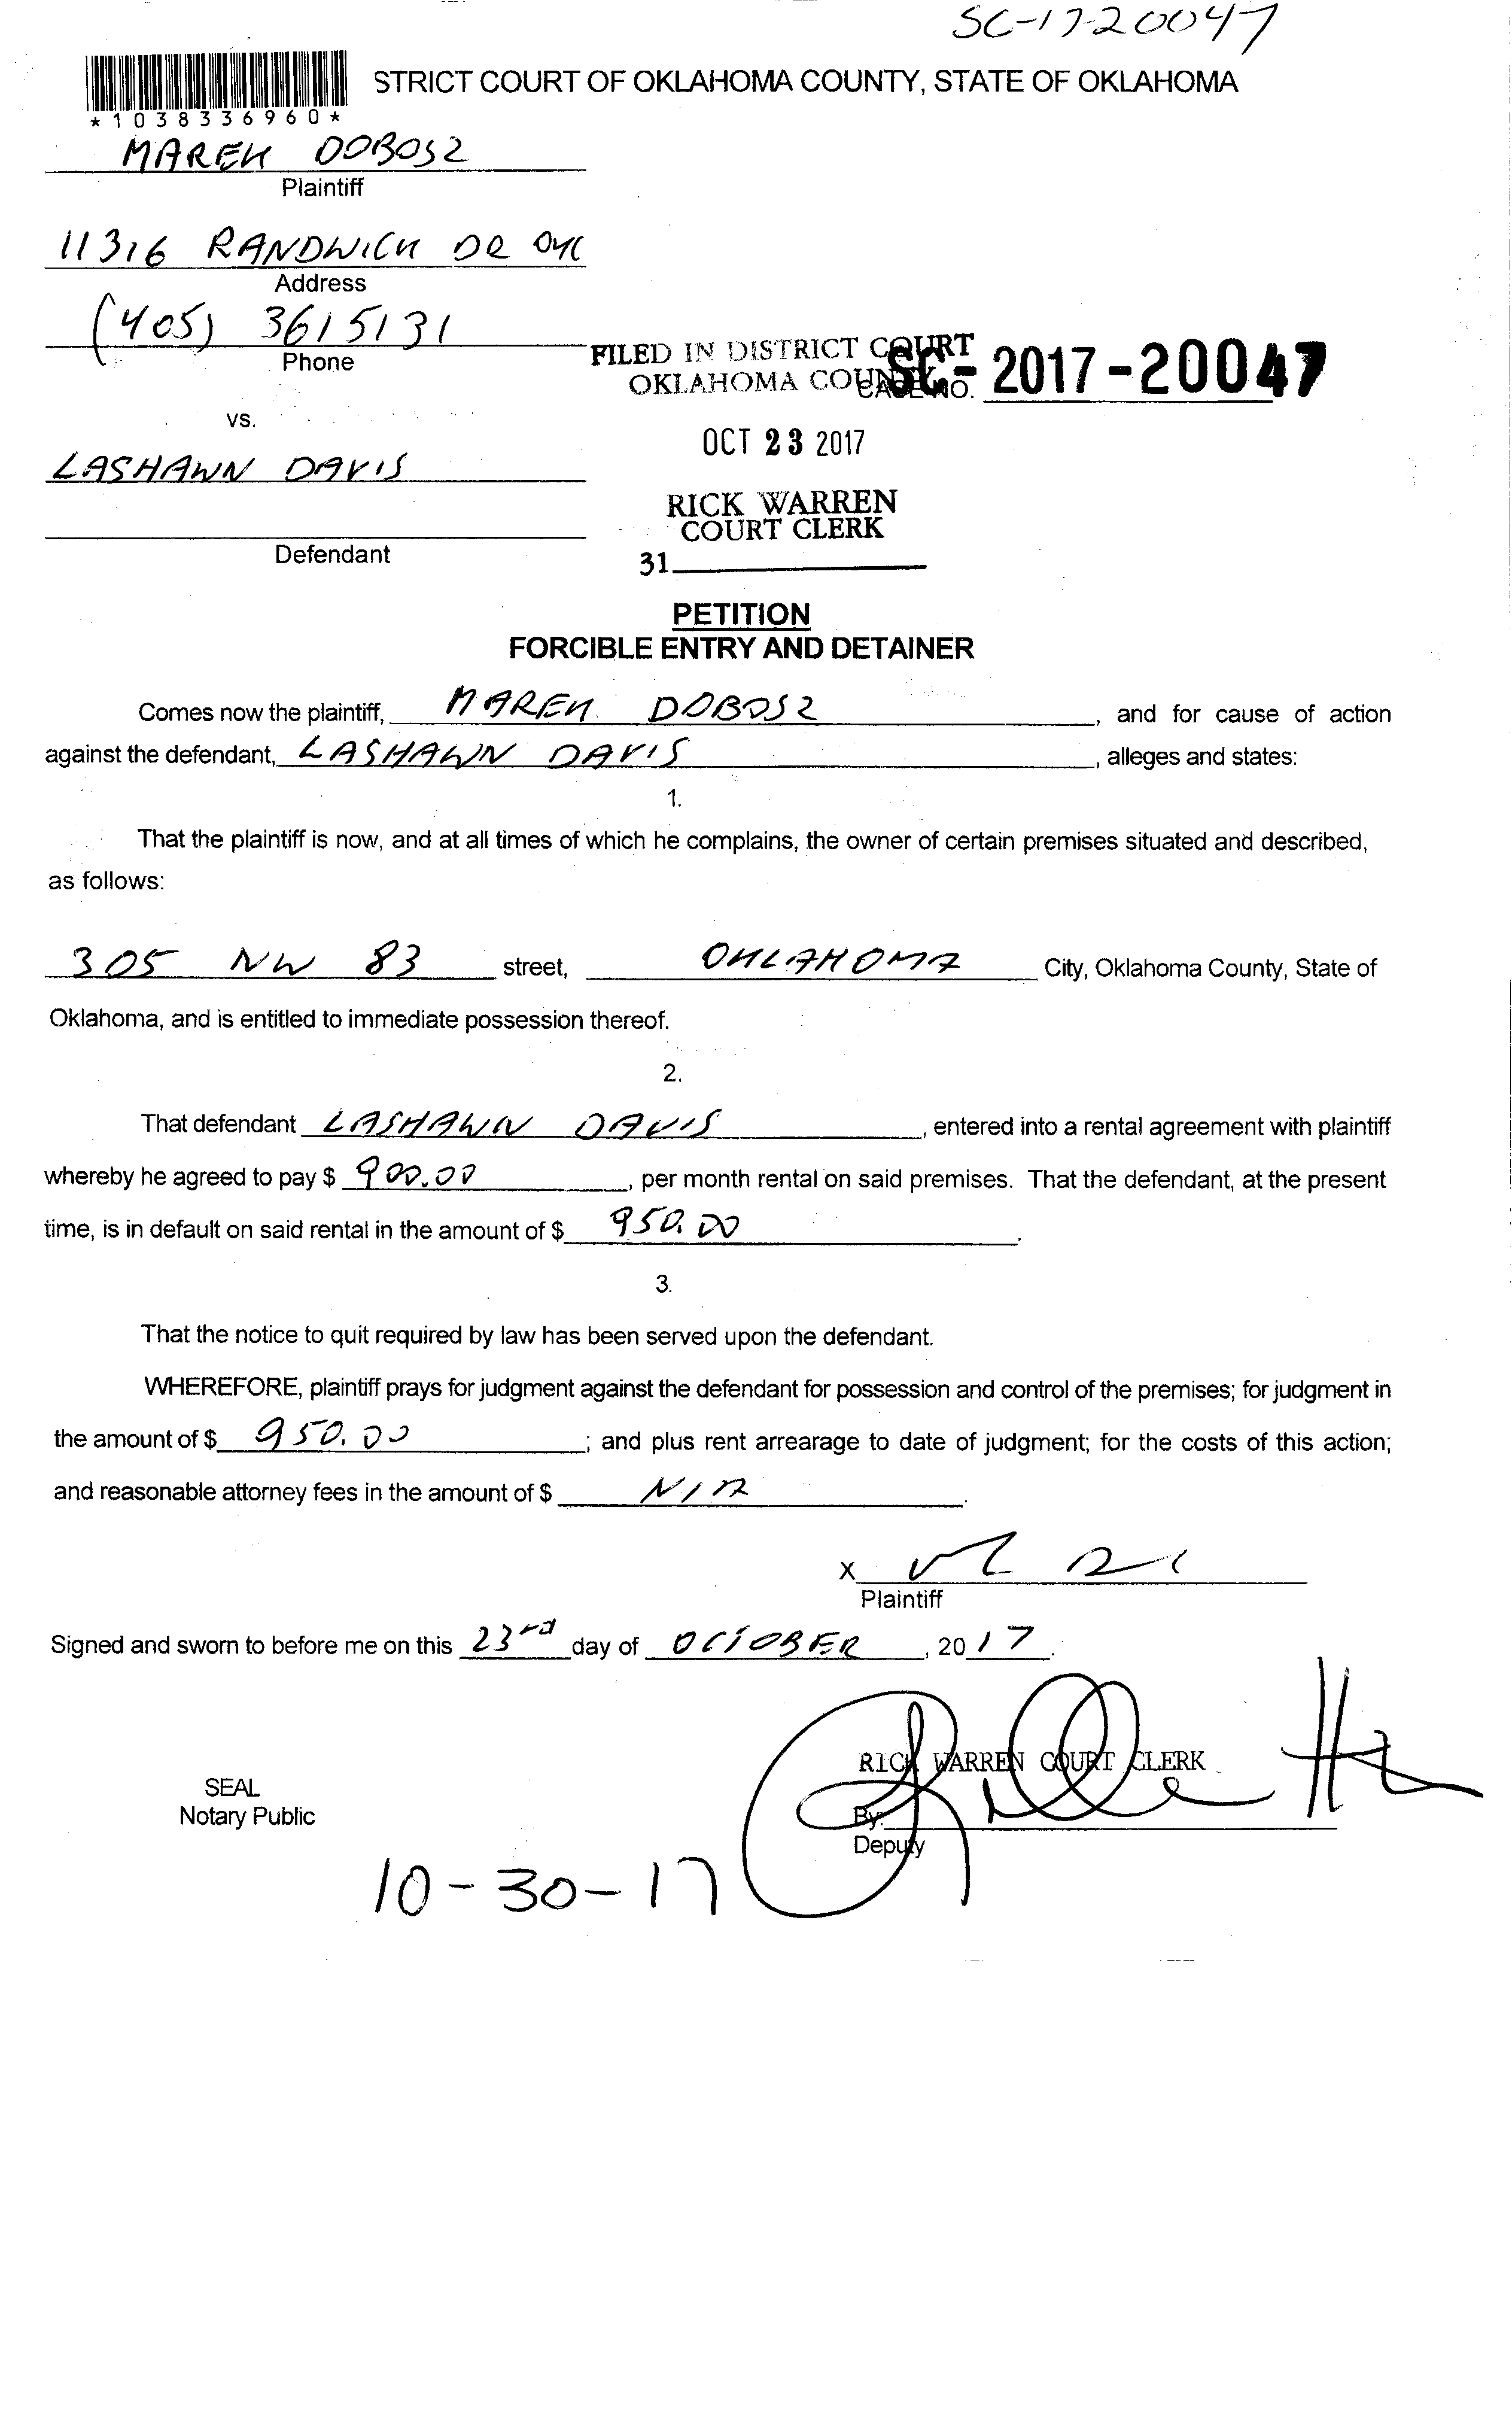 SC-17-20047
STRICT COURT OF OKLAHOMA COUNTY, STATE OF OKLAHOMA
*1038336960*
MAREK DOBOSZ
Plaintiff
11316 RANDWICK DR OKC
Address
(405) 3615131
Phone
FILED IN DISTRICT COURT
OKLAHOMA COUNTY
CASE NO. SC-2017-20047
vs.
OCT 23 2017
LASHAWN DAVIS
RICK WARREN
COURT CLERK
Defendant
31
PETITION
FORCIBLE ENTRY AND DETAINER
Comes now the plaintiff, MAREK DOBOSZ, and for cause of action
against the defendant, LASHAWN DAVIS, alleges and states:
1.
That the plaintiff is now, and at all times of which he complains, the owner of certain premises situated and described,
as follows:
305 NW 83 street, OKLAHOMA City, Oklahoma County, State of
Oklahoma, and is entitled to immediate possession thereof.
2.
That defendant LASHAWN DAVIS, entered into a rental agreement with plaintiff
whereby he agreed to pay $ 900.00, per month rental on said premises. That the defendant, at the present
time, is in default on said rental in the amount of $ 950.00.
3.
That the notice to quit required by law has been served upon the defendant.
WHEREFORE, plaintiff prays for judgment against the defendant for possession and control of the premises; for judgment in
the amount of $ 950.00; and plus rent arrearage to date of judgment; for the costs of this action;
and reasonable attorney fees in the amount of $ N/A.
X
Plaintiff
Signed and sworn to before me on this 23rd day of OCTOBER, 2017.
RICK WARREN COURT CLERK
SEAL
Notary Public
By:
Deputy
10-30-17